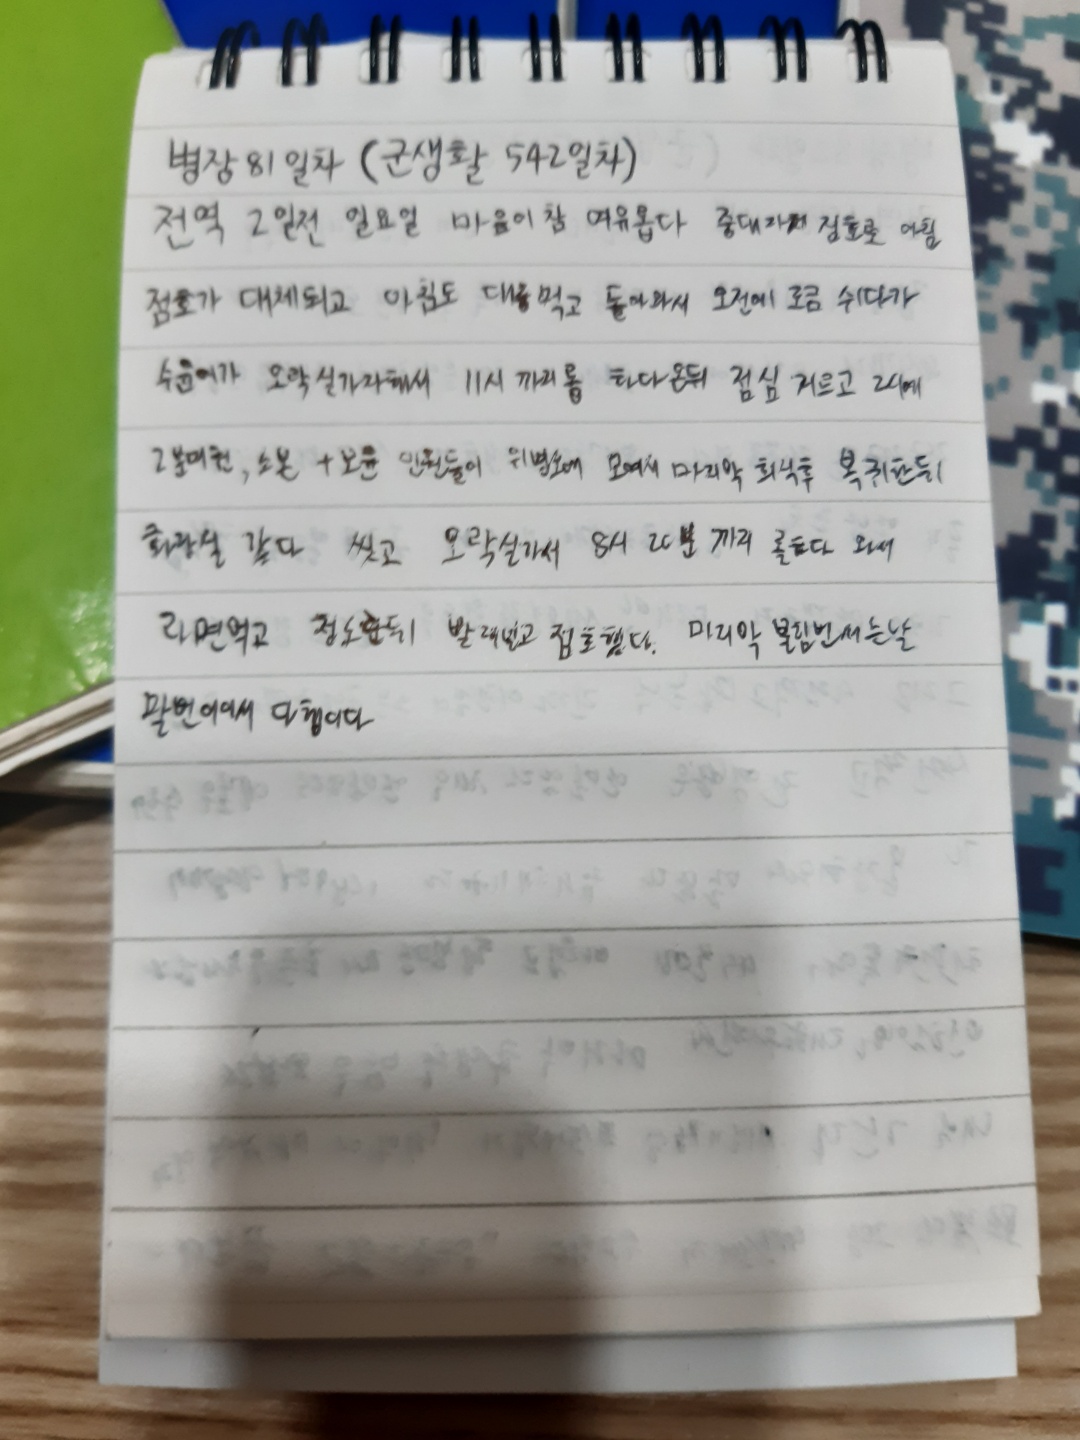 병장 81일차 (군생활 542일차)
전역 2일전 일요일 마음이 참 여유롭다 중대자체 점호로 아침
점호가 대체되고 아침도 대충먹고 돌아와서 오전에 조금 쉬다가
수윤이가 오락실가자해서 11시 까지 롤 하다 온뒤 점심 거르고 2시에
2분대원, 소본 + 보윤 인원들이 모여서 마지막 회식후 복귀한뒤
화장실 갔다 씻고 오락실가서 8시 20분 까지 롤하다 와서
라면먹고 청소한뒤 빨래널고 점호했다. 마지막 불침번서는날
말번이어서 다행이다